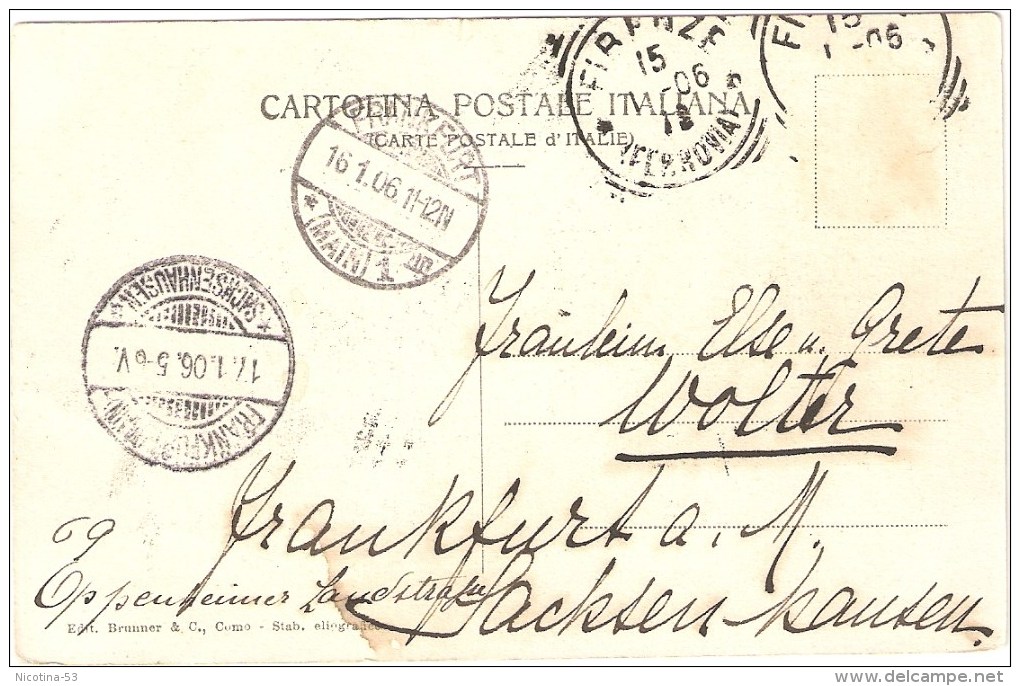 FIRENZE
15
-06
12
(FERROVIA)
15
-06
CARTOLINA POSTALE ITALIANA
(CARTE POSTALE d'ITALIE)
FRANKFURT
16.1.06.11-12N
* (MAIN) 1
*SACHSENHAUSEN*
17.1.06.5-6V.
FRANKFURT (MAIN)
Fräulein Else u. Grete
Wolter
Frankfurt a. M.
Sachsenhausen.
69
Oppenheimer Landstraße
Edit. Brunner & C., Como - Stab. eliografico
Nicotina-53
delcampe.net